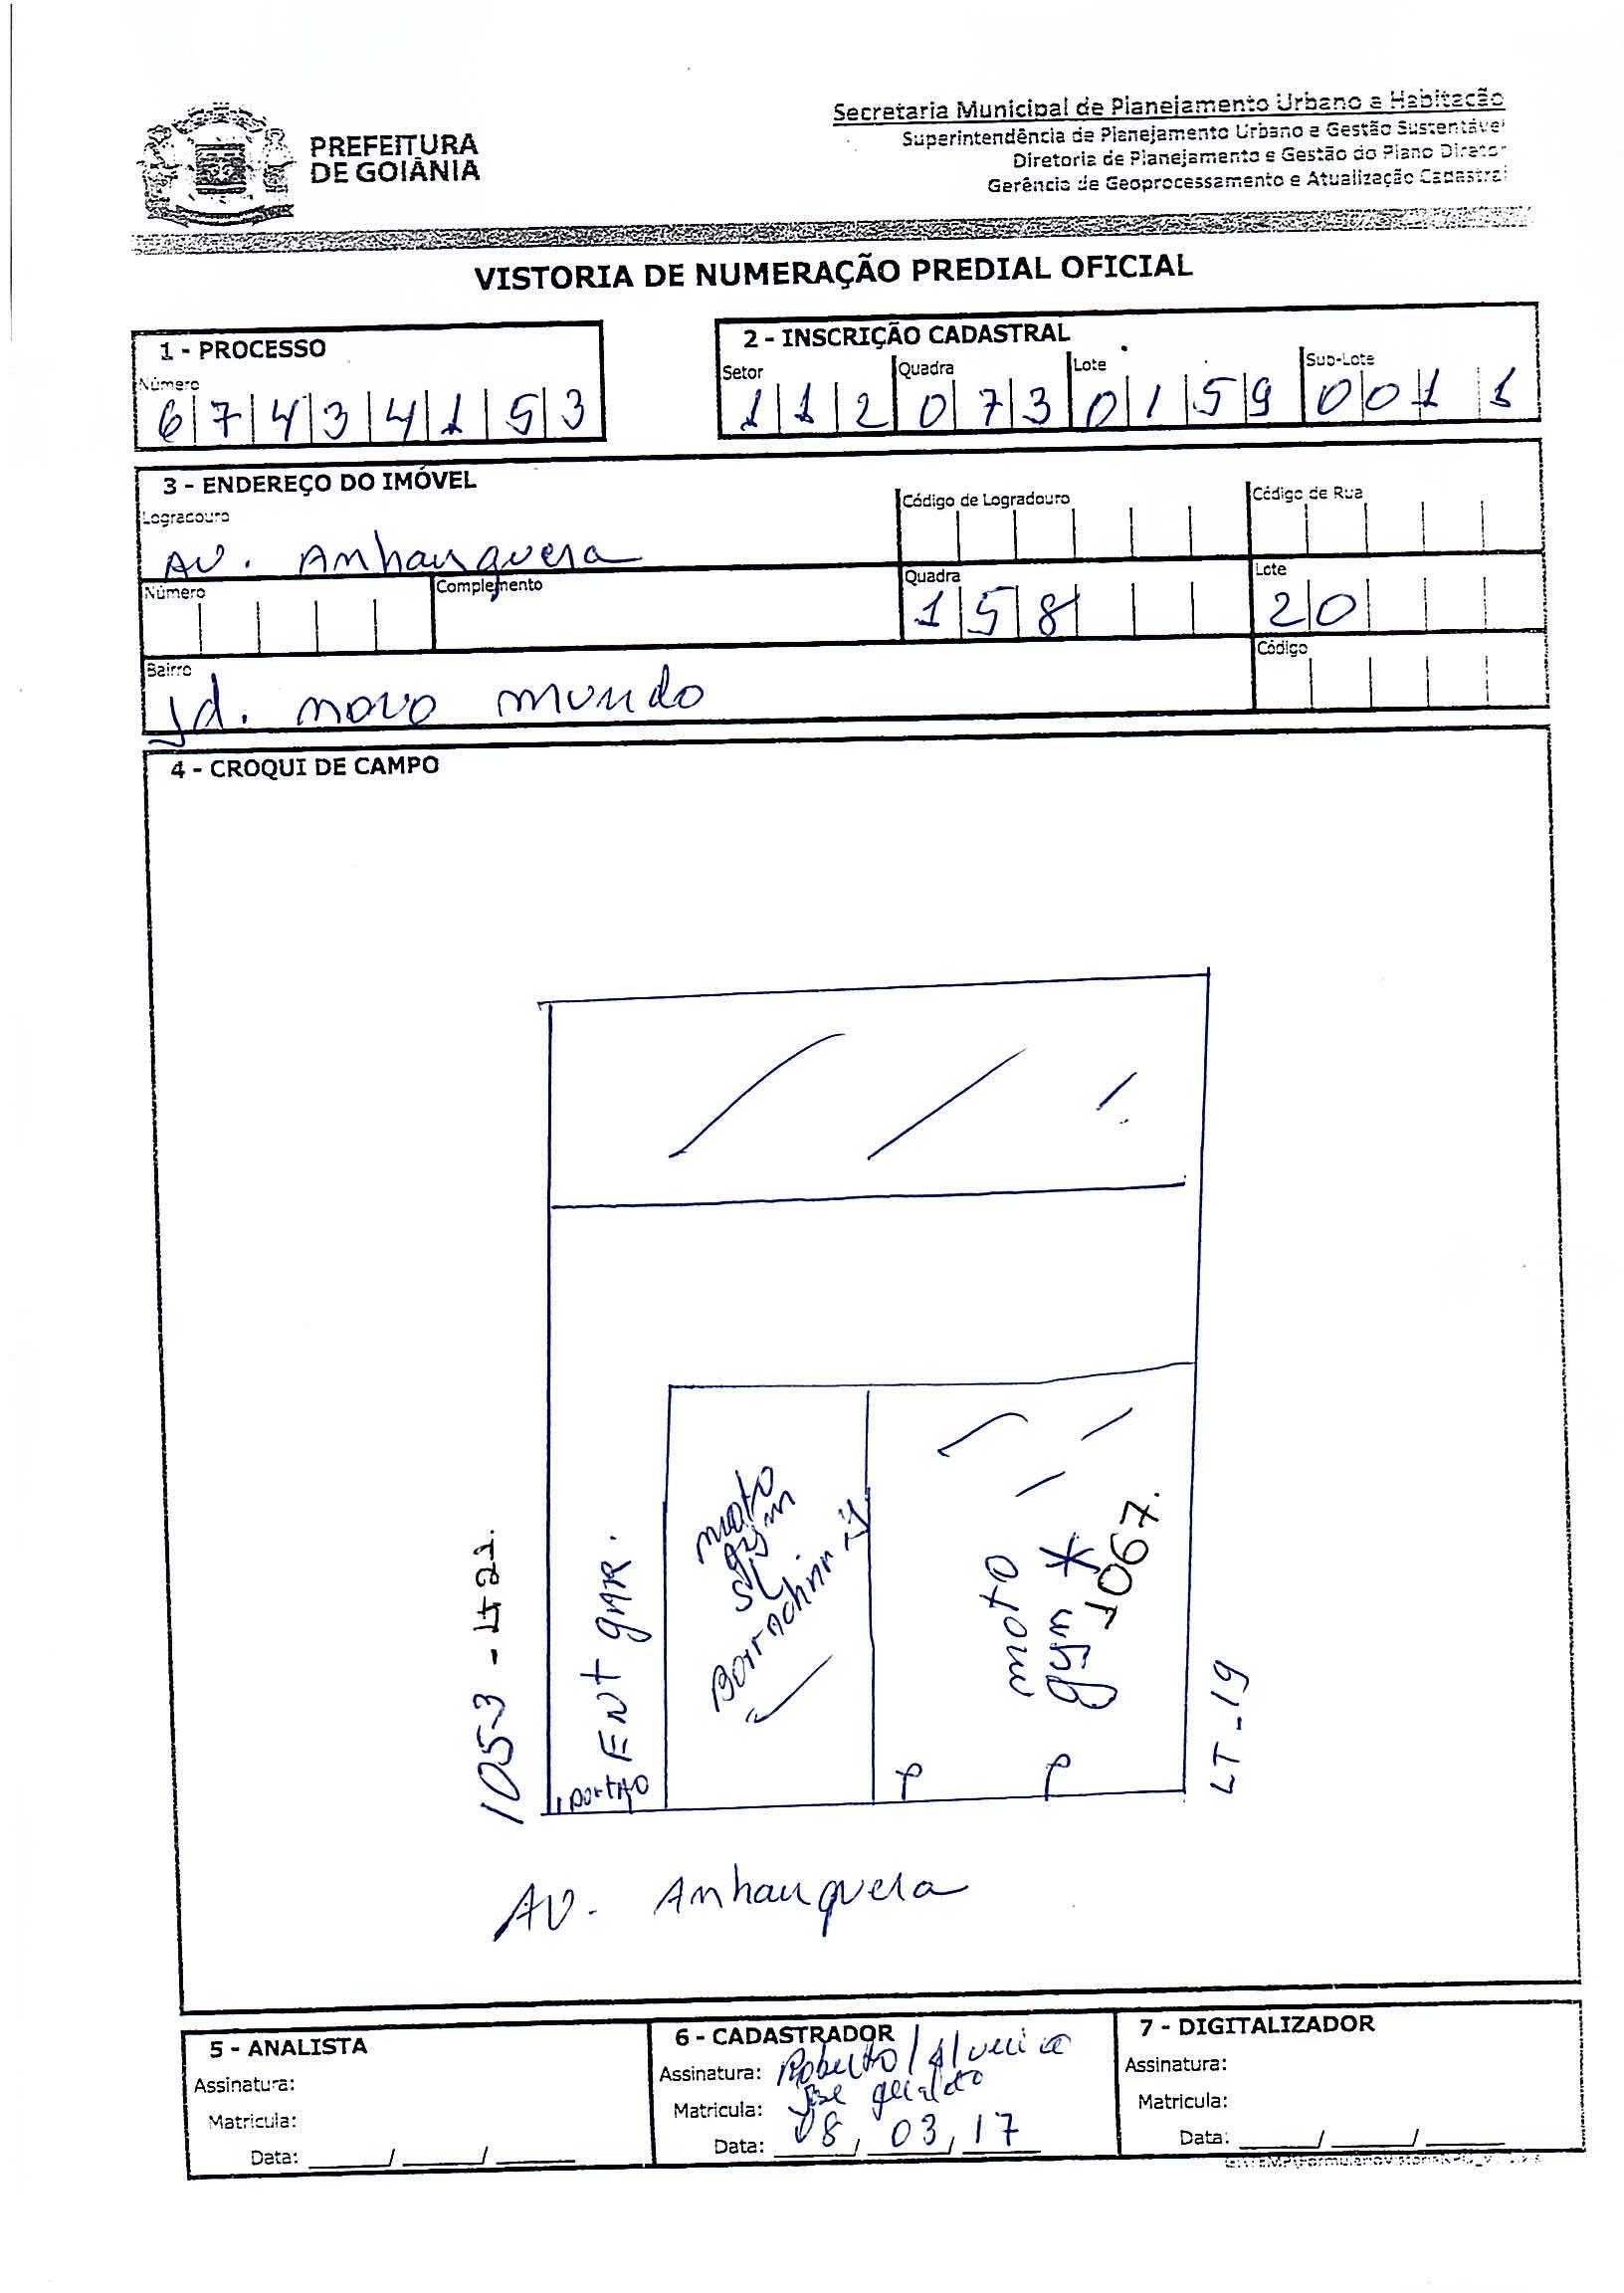 PREFEITURA
DE GOIÂNIA
Secretaria Municipal de Planejamento Urbano e Habitação
Superintendência de Planejamento Urbano e Gestão Sustentável
Diretoria de Planejamento e Gestão do Plano Diretor
Gerência de Geoprocessamento e Atualização Cadastral
VISTORIA DE NUMERAÇÃO PREDIAL OFICIAL
1 - PROCESSO
Número
6 7 4 3 4 1 5 3
2 - INSCRIÇÃO CADASTRAL
Setor Quadra Lote Sub-Lote
1 1 2 0 7 3 0 1 5 9 0 0 1 1
3 - ENDEREÇO DO IMÓVEL
Logradouro Código de Logradouro Código de Rua
AV. Anhanguera
Número Complemento Quadra Lote
1 5 8 20
Bairro Código
Jd. novo mundo
4 - CROQUI DE CAMPO
1053 - Lt 21.
portão
Ent gar.
moto
gyn
SL
Borracharia
moto
gyn *
1067.
LT - 19
AV. Anhanguera
5 - ANALISTA
Assinatura:
Matricula:
Data: ____/____/____
6 - CADASTRADOR
Assinatura: Roberto /
Matricula: José geraldo
Data: 08, 03, 17
7 - DIGITALIZADOR
Assinatura:
Matricula:
Data: ____/____/____